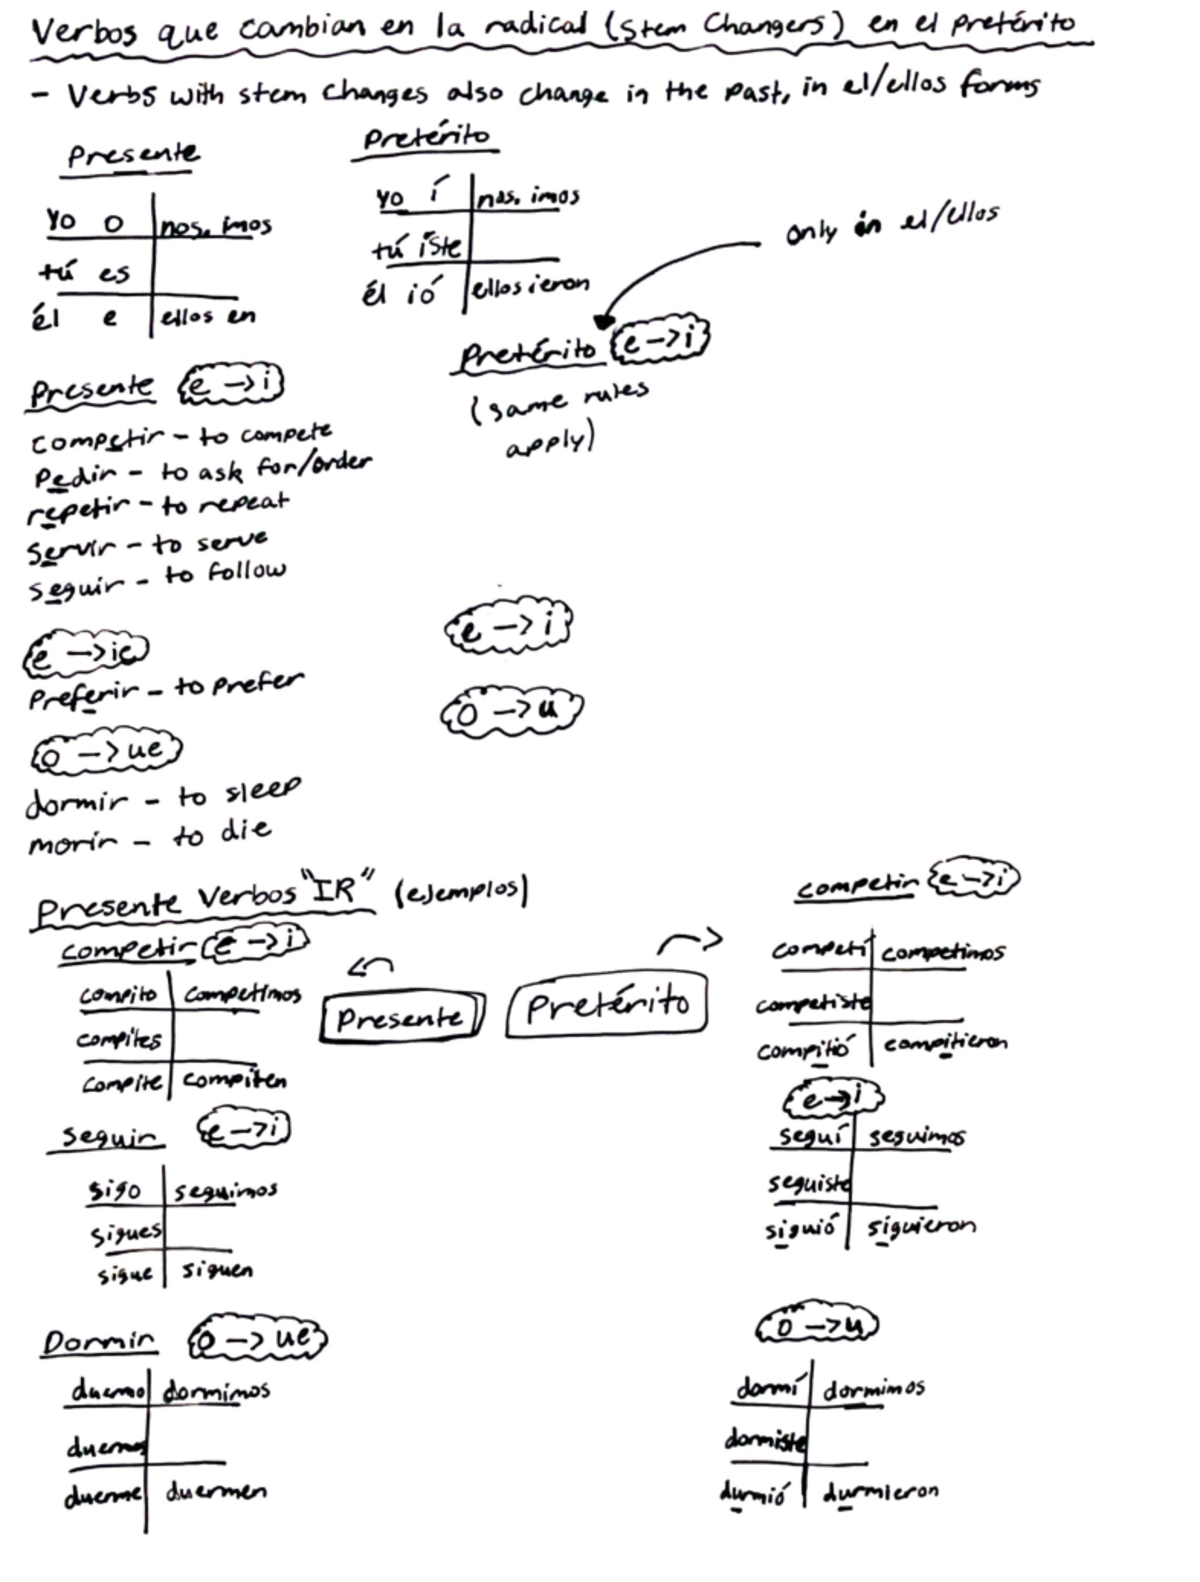 Verbos que cambian en la radical (Stem Changers) en el pretérito
- Verbs with stem changes also change in the past, in el/ellos forms
Presente
yo o nos. imos
tú es
él e ellos en
Pretérito
yo í nos. imos
tú iste
él ió ellos ieron
only in el/ellos
Presente e -> i
competir - to compete
Pedir - to ask for/order
repetir - to repeat
Servir - to serve
seguir - to follow
Pretérito e -> i
(same rules
apply)
e -> ie
Preferir - to prefer
o -> ue
dormir - to sleep
morir - to die
e -> i
o -> u
Presente Verbos "IR" (ejemplos)
competir e -> i
compito competimos
compites
compite compiten
Presente
Pretérito
competir e -> i
competí competimos
competiste
compitió compitieron
seguir e -> i
sigo seguimos
sigues
sigue siguen
e -> i
seguí seguimos
seguiste
siguió siguieron
Dormir o -> ue
duermo dormimos
duermes
duerme duermen
o -> u
dormí dormimos
dormiste
durmió durmieron